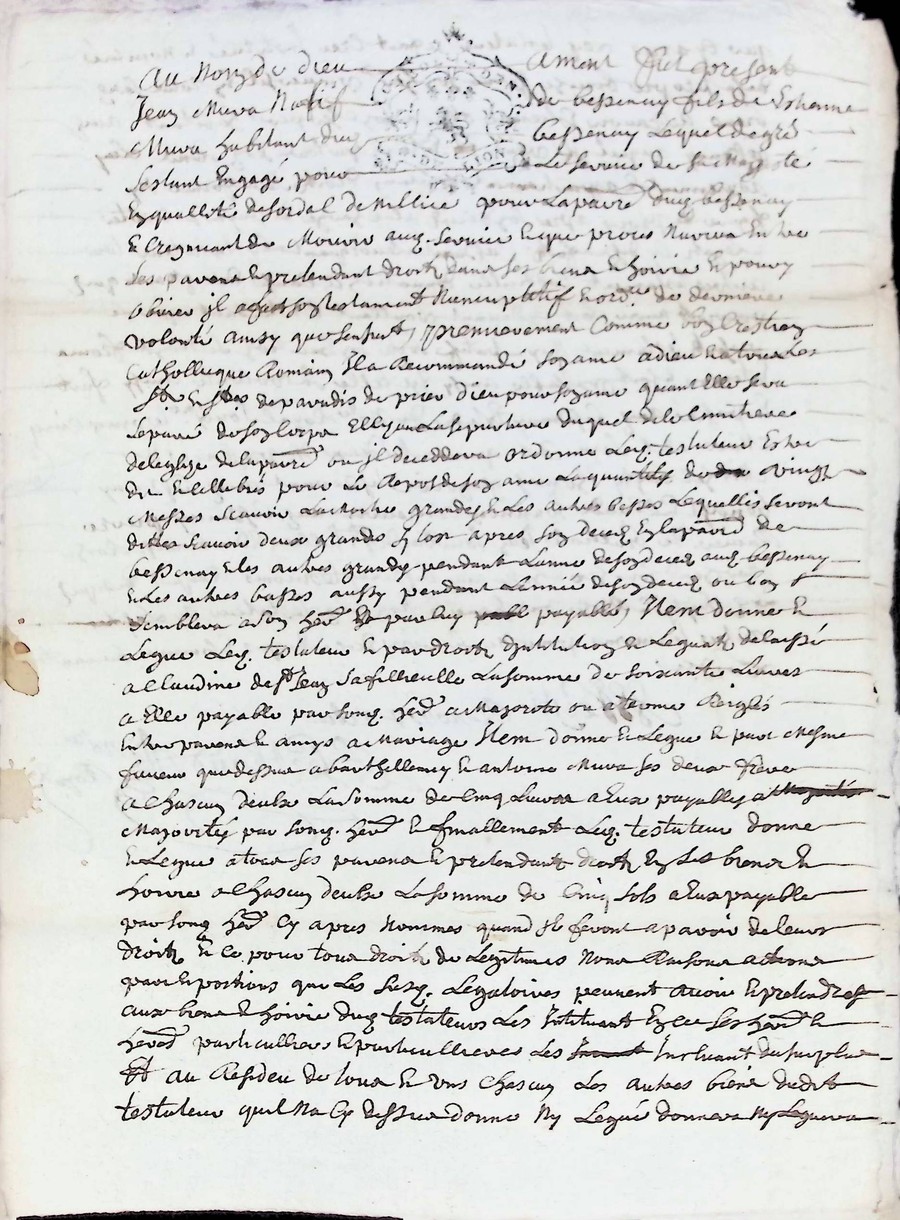 Au Nom de dieu ament fut present
Jean Mura Natif de bessenay fils de Esthienne
Mura habitant dud bessenay Lequel de gré
sestant Engagé pour Le service de sa Mageste
En quallité de soldal de Millice pour La parre dud bessenay
Et Cregnant de Mourir aud. service Et que proces Nariva Entre
Ses parens Et pretendant droitz dans ses biens Et hoirie Et pouvoy
obvier jl a fait son testament Nuncupatif Et ordre de derniere
volonté ainsy que sensuit, premierement Comme bon Crestien
Catholleique Romain Il a Recommandé son ame a dieu Et a tous Les
Sts. Et Stes de paradis de prier dieu pour son ame quant Elle sera
separé de son Corps Ellisant La sepulture duquel de le Cimitiere
de leglize de la parre ou jl deceddera ordonne Led. testateur Estre
dit Et Cellebrés pour Le Repos de son ame La quantités de vingt
Messes scavoir grandes Et Les autres basses Lequelles seront
dittes scavoir deux grandes tost apres son deced En la parre de
bessenay Et les autres grandes pendant Lanne de son deced aud bessenay
Et Les autres basses aussy pendant Lannée de son deced ou bon
semblera a son her par luy payables, Item donne Et
Legue Led. testateur Et par droitz djnstitution Et Legat delaissé
a Claudine de st Jean sa filheulle La somme de soisainte Livres
a Elle payable par sond. her a Majorete ou a terme Reiglés
Entre parens Et amys a Mariage Item donne Et Legue Et par Mesme
faveur que dessus a barthellemy Et antoine Mura ses deux frere
a Chascun deulx La somme de Cinq Livres a Eux payables a
Majorités par sond. her Et finallement Led. testateur donne
Et Legue a tous ses parens Et pretendantz droitz En ses biens Et
hoirie a Chascun deulx La somme de Cinq sols a Eux payable
par sond her Cy apres Nommes quand Il feront aparoir de leurs
droitz Et Ce pour tous droitz de Legitimes Noms Raisons actions
part Et portions que Les susd. Legatoires peuvent avoir Et pretendre
aux biens Et hoirie dud testateurs Les Instituant En ce ses her Et
heres particulliers Et particullieres Les Incluant du surplus
Et Au Residu de tous Et Uns Chascun Les autres biens dudit
testateur quil Na Cy dessus donne Ny Legué donnera Ny Leguera